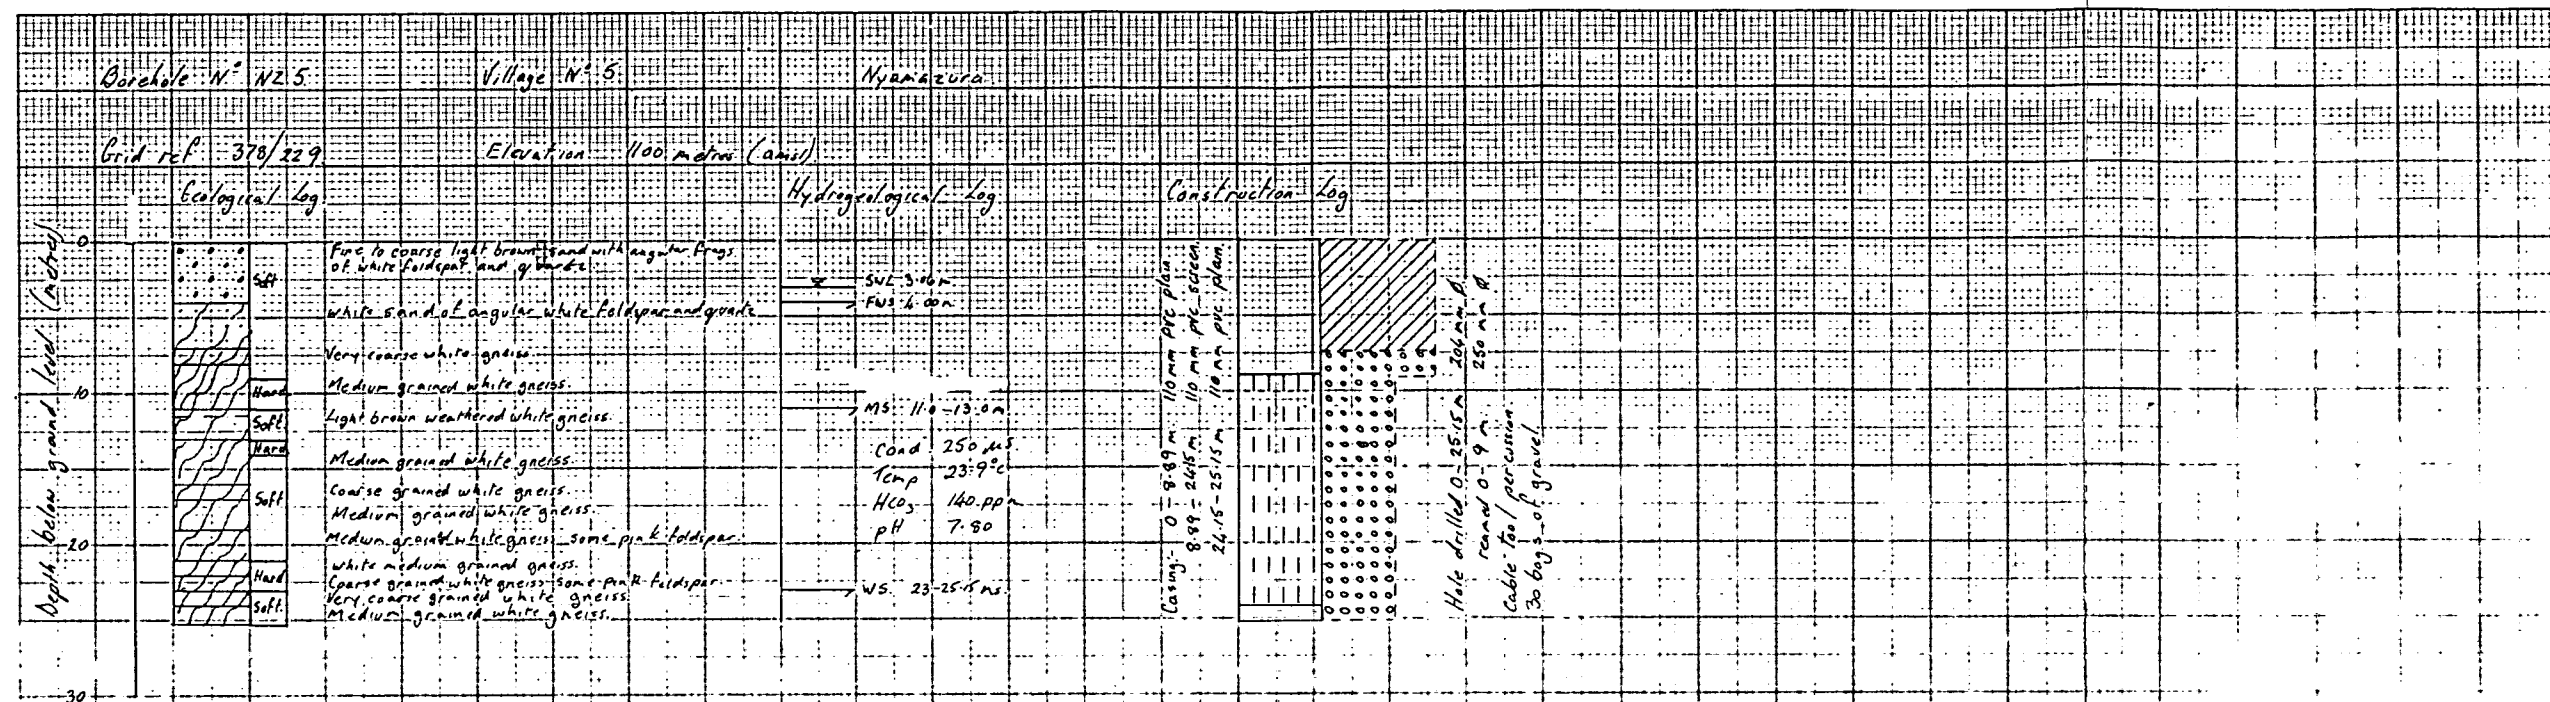 Borehole Nº NZ 5.
Village Nº 5.
Nyamazura.
Grid ref 378/229.
Elevation 1100 metres (amsl).
Geological Log.
Hydrogeological Log
Construction Log
Depth below ground level (metres)
0
10
20
30
Soft
Hard
Soft.
Hard
Soft
Hard
Soft.
Fine to coarse light brown sand with angular frags
of white feldspar and quartz
White sand of angular white feldspar and quartz
Very coarse white gneiss.
Medium grained white gneiss.
Light brown weathered white gneiss.
Medium grained white gneiss.
Coarse grained white gneiss.
Medium grained white gneiss.
Medium grained white gneiss some pink feldspar.
White medium grained gneiss.
Coarse grained white gneiss some pink feldspar
Very coarse grained white gneiss
Medium grained white gneiss.
SWL 3.06m
FWS 4.00m
MS. 11.0-13.0m
Cond 250 µs.
Temp 23.9°c
HCO3 140.ppm
pH 7.80
WS. 23-25.15 ms.
Casing:- 0-8.89 m. 110 mm pvc plain
8.89-24.15 m. 110 mm pvc screen.
24.15-25.15 m. 110 mm pvc plain.
Hole drilled 0-25.15 m 204 mm Ø.
reamed 0-9 m. 250 mm Ø
Cable tool percussion.
30 bags of gravel.